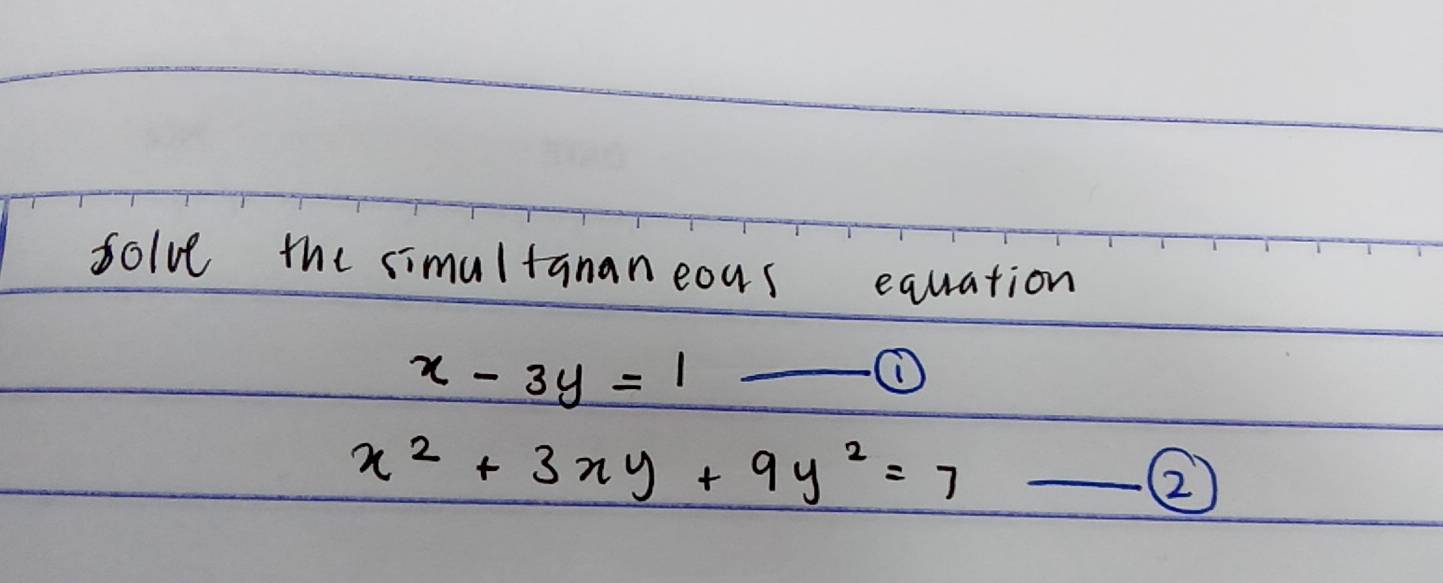 solve the simultananeous equation
x - 3y = 1 —— ①
x² + 3xy + 9y² = 7 —— ②